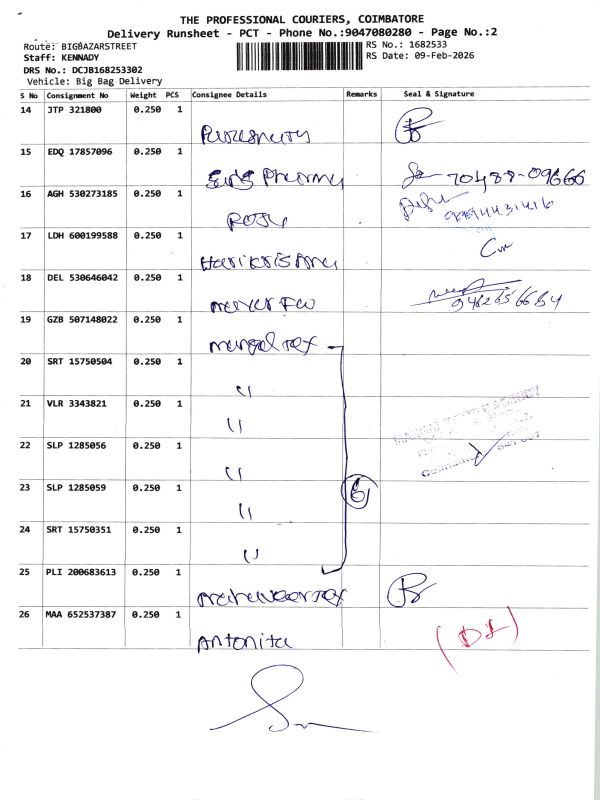 THE PROFESSIONAL COURIERS, COIMBATORE
Delivery Runsheet - PCT - Phone No.:9047080280 - Page No.:2
Route: BIGBAZARSTREET
Staff: KENNADY
DRS No.: DCJB168253302
Vehicle: Big Bag Delivery
RS No.: 1682533
RS Date: 09-Feb-2026
S No Consignment No Weight PCS Consignee Details Remarks Seal & Signature
14 JTP 321800 0.250 1
15 EDQ 17857096 0.250 1
70488-09666
16 AGH 530273185 0.250 1
17 LDH 600199588 0.250 1
Harikrishna
18 DEL 530646042 0.250 1
19 GZB 507148022 0.250 1
Mangal Tex
20 SRT 15750504 0.250 1
"
21 VLR 3343821 0.250 1
"
22 SLP 1285056 0.250 1
"
23 SLP 1285059 0.250 1
"
6
24 SRT 15750351 0.250 1
"
25 PLI 200683613 0.250 1
Mahaveer Tex
26 MAA 652537387 0.250 1
Antonita
(DL)